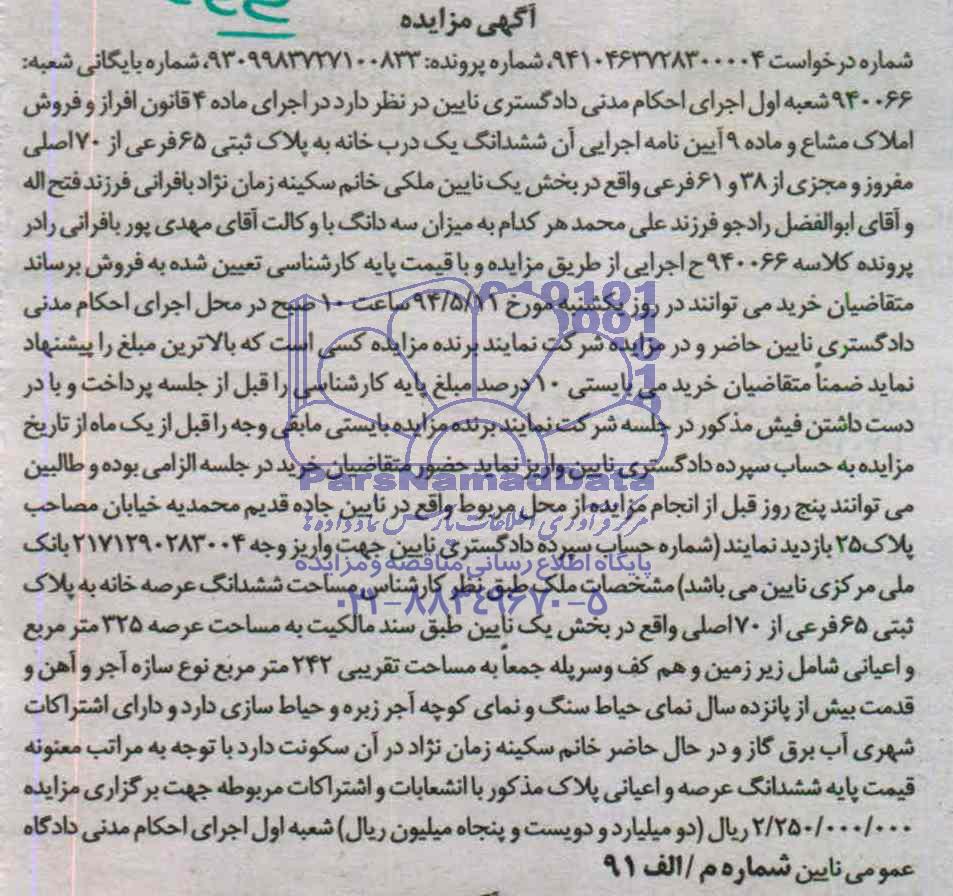 آگهی مزایده
شماره درخواست ۹۴۱۰۴۶۳۷۲۸۳۰۰۰۰۴، شماره پرونده: ۹۳۰۹۹۸۳۷۲۷۱۰۰۸۳۳، شماره بایگانی شعبه:
۹۴۰۰۶۶ شعبه اول اجرای احکام مدنی دادگستری نایین در نظر دارد در اجرای ماده ۴ قانون افراز و فروش
املاک مشاع و ماده ۹ آیین نامه اجرایی آن ششدانگ یک درب خانه به پلاک ثبتی ۶۵ فرعی از ۷۰ اصلی
مفروز و مجزی از ۳۸ و ۶۱ فرعی واقع در بخش یک نایین ملکی خانم سکینه زمان نژاد بافرانی فرزند فتح اله
و آقای ابوالفضل رادجو فرزند علی محمد هر کدام به میزان سه دانگ با وکالت آقای مهدی پور بافرانی رادر
پرونده کلاسه ۹۴۰۰۶۶ ح اجرایی از طریق مزایده و با قیمت پایه کارشناسی تعیین شده به فروش برساند
متقاضیان خرید می توانند در روز یکشنبه مورخ ۹۴/۵/۱۱ ساعت ۱۰ صبح در محل اجرای احکام مدنی
دادگستری نایین حاضر و در مزایده شرکت نمایند برنده مزایده کسی است که بالاترین مبلغ را پیشنهاد
نماید ضمناً متقاضیان خرید می بایستی ۱۰ درصد مبلغ پایه کارشناسی را قبل از جلسه پرداخت و با در
دست داشتن فیش مذکور در جلسه شرکت نمایند برنده مزایده بایستی مابقی وجه را قبل از یک ماه از تاریخ
مزایده به حساب سپرده دادگستری نایین واریز نماید حضور متقاضیان خرید در جلسه الزامی بوده و طالبین
ParsNamadData
می توانند پنج روز قبل از انجام مزایده از محل مربوط واقع در نایین جاده قدیم محمدیه خیابان مصاحب
مرکز فرآوری اطلاعات پارس نماد داده ها
پلاک ۲۵ بازدید نمایند (شماره حساب سپرده دادگستری نایین جهت واریز وجه ۲۱۷۱۲۹۰۲۸۳۰۰۴ بانک
پایگاه اطلاع رسانی مناقصه و مزایده
ملی مرکزی نایین می باشد) مشخصات ملک طبق نظر کارشناس مساحت ششدانگ عرصه خانه به پلاک
۰۲۱-۸۸۳۴۹۶۷۰-۵
ثبتی ۶۵ فرعی از ۷۰ اصلی واقع در بخش یک نایین طبق سند مالکیت به مساحت عرصه ۳۲۵ متر مربع
و اعیانی شامل زیر زمین و هم کف وسرپله جمعاً به مساحت تقریبی ۲۴۲ متر مربع نوع سازه آجر و آهن و
قدمت بیش از پانزده سال نمای حیاط سنگ و نمای کوچه آجر زبره و حیاط سازی دارد و دارای اشتراکات
شهری آب برق گاز و در حال حاضر خانم سکینه زمان نژاد در آن سکونت دارد با توجه به مراتب معنونه
قیمت پایه ششدانگ عرصه و اعیانی پلاک مذکور با انشعابات و اشتراکات مربوطه جهت برگزاری مزایده
۲/۲۵۰/۰۰۰/۰۰۰ ریال (دو میلیارد و دویست و پنجاه میلیون ریال) شعبه اول اجرای احکام مدنی دادگاه
عمومی نایین شماره م / الف ۹۱